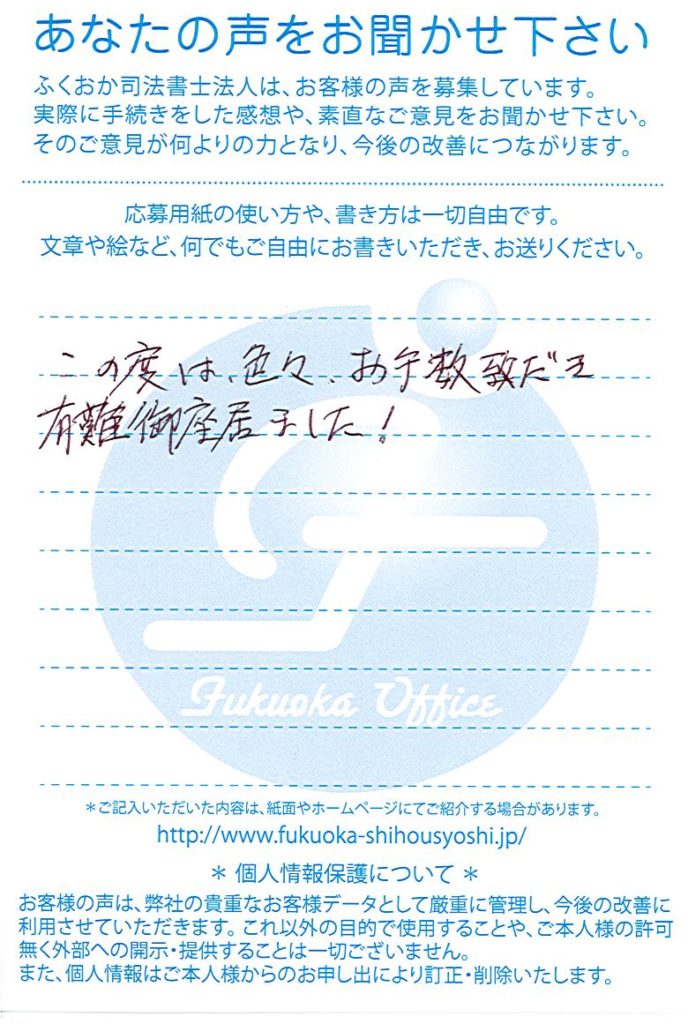 あなたの声をお聞かせ下さい
ふくおか司法書士法人は、お客様の声を募集しています。
実際に手続きをした感想や、素直なご意見をお聞かせ下さい。
そのご意見が何よりの力となり、今後の改善につながります。
応募用紙の使い方や、書き方は一切自由です。
文章や絵など、何でもご自由にお書きいただき、お送りください。
この度は、色々、お手数致だき
有難御座居ました!
Fukuoka Office
*ご記入いただいた内容は、紙面やホームページにてご紹介する場合があります。
http://www.fukuoka-shihousyoshi.jp/
* 個人情報保護について *
お客様の声は、弊社の貴重なお客様データとして厳重に管理し、今後の改善に
利用させていただきます。これ以外の目的で使用することや、ご本人様の許可
無く外部への開示・提供することは一切ございません。
また、個人情報はご本人様からのお申し出により訂正・削除いたします。